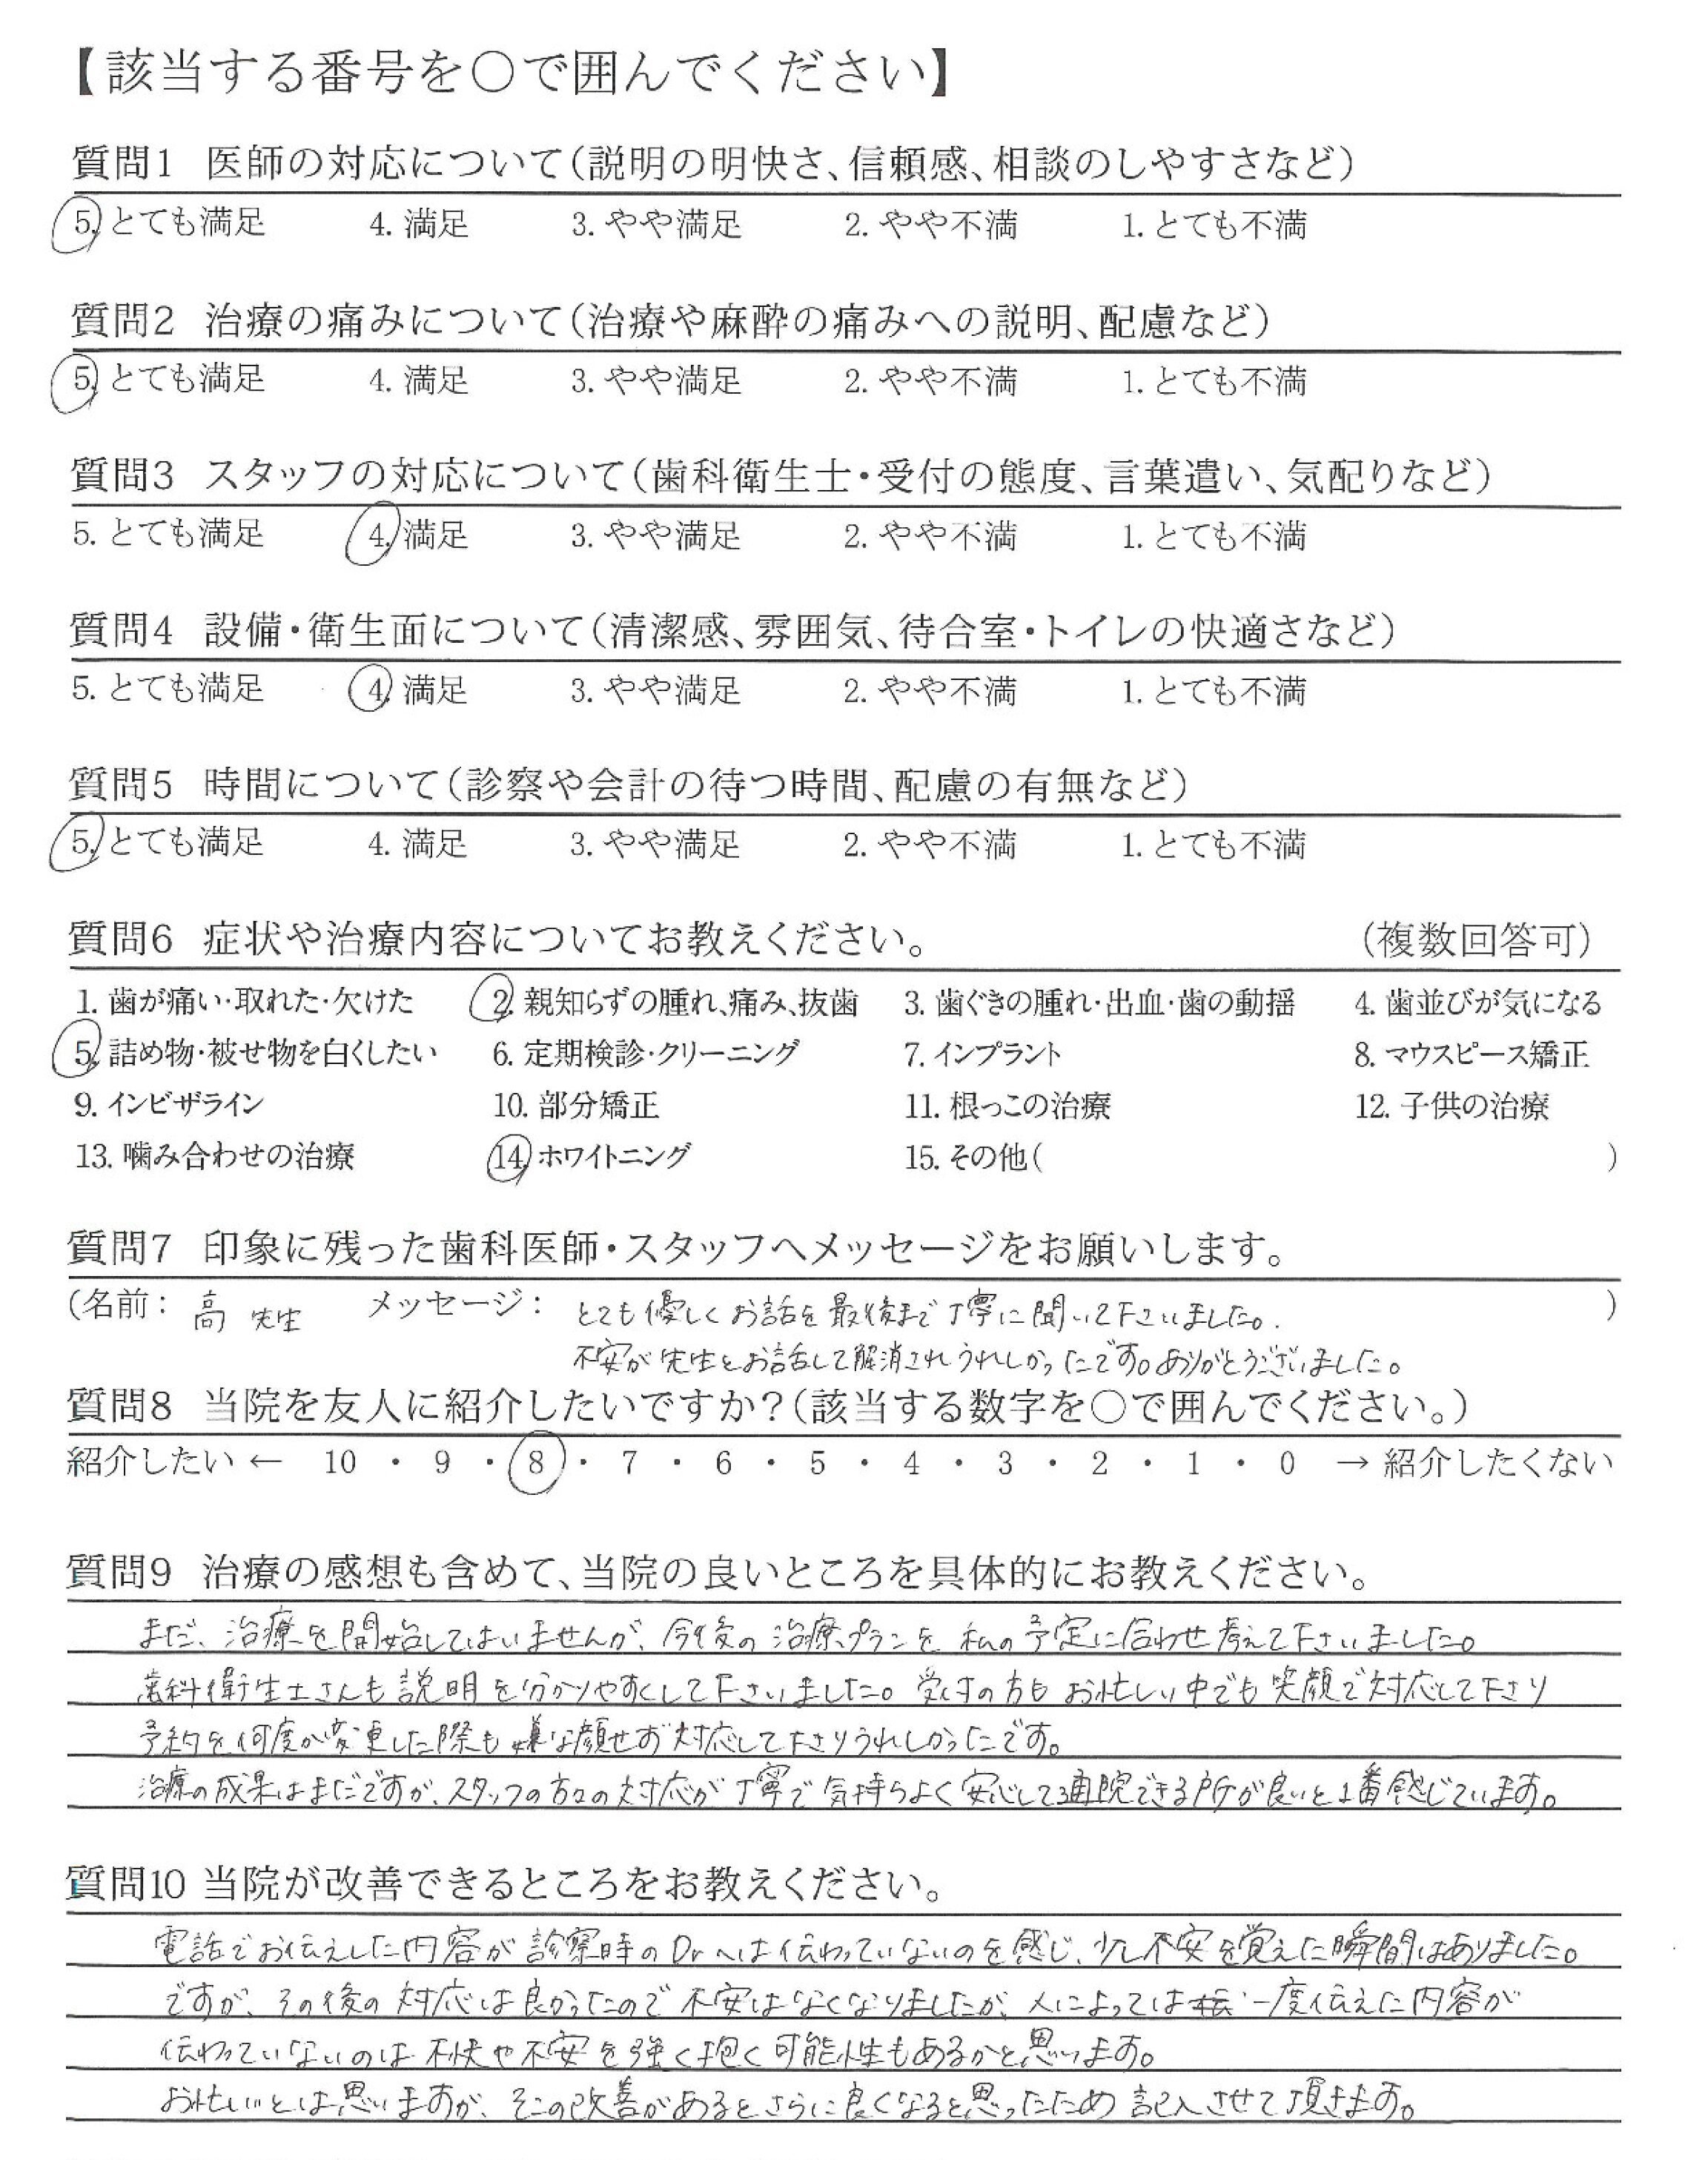 【該当する番号を○で囲んでください】
質問1 医師の対応について(説明の明快さ、信頼感、相談のしやすさなど)
5. とても満足 4. 満足 3. やや満足 2. やや不満 1. とても不満
質問2 治療の痛みについて(治療や麻酔の痛みへの説明、配慮など)
5. とても満足 4. 満足 3. やや満足 2. やや不満 1. とても不満
質問3 スタッフの対応について(歯科衛生士・受付の態度、言葉遣い、気配りなど)
5. とても満足 4. 満足 3. やや満足 2. やや不満 1. とても不満
質問4 設備・衛生面について(清潔感、雰囲気、待合室・トイレの快適さなど)
5. とても満足 4. 満足 3. やや満足 2. やや不満 1. とても不満
質問5 時間について(診察や会計の待つ時間、配慮の有無など)
5. とても満足 4. 満足 3. やや満足 2. やや不満 1. とても不満
質問6 症状や治療内容についてお教えください。 (複数回答可)
1. 歯が痛い・取れた・欠けた 2. 親知らずの腫れ、痛み、抜歯 3. 歯ぐきの腫れ・出血・歯の動揺 4. 歯並びが気になる
5. 詰め物・被せ物を白くしたい 6. 定期検診・クリーニング 7. インプラント 8. マウスピース矯正
9. インビザライン 10. 部分矯正 11. 根っこの治療 12. 子供の治療
13. 噛み合わせの治療 14. ホワイトニング 15. その他( )
質問7 印象に残った歯科医師・スタッフへメッセージをお願いします。
(名前: 高 先生 メッセージ: とても優しくお話を最後まで丁寧に聞いて下さいました。 )
不安が先生とお話して解消されうれしかったです。ありがとうございました。
質問8 当院を友人に紹介したいですか?(該当する数字を○で囲んでください。)
紹介したい ← 10 ・ 9 ・ 8 ・ 7 ・ 6 ・ 5 ・ 4 ・ 3 ・ 2 ・ 1 ・ 0 → 紹介したくない
質問9 治療の感想も含めて、当院の良いところを具体的にお教えください。
まだ、治療を開始してはいませんが、今後の治療プランを私の予定に合わせ考えて下さいました。
歯科衛生士さんも説明を分かりやすくして下さいました。受付の方もお忙しい中でも笑顔で対応して下さり
予約を何度か変更した際も嫌な顔せず対応して下さりうれしかったです。
治療の成果はまだですが、スタッフの方々の対応が丁寧で気持ちよく安心して通院できる所が良いと1番感じています。
質問10 当院が改善できるところをお教えください。
電話でお伝えした内容が診察時のDrへは伝わっていないのを感じ、少し不安を覚えた瞬間はありました。
ですが、その後の対応は良かったので不安はなくなりましたが、人によっては一度伝えた内容が
伝わっていないのは不快や不安を強く抱く可能性もあるかと思います。
お忙しいとは思いますが、そこの改善があるとさらに良くなると思ったため記入させて頂きます。